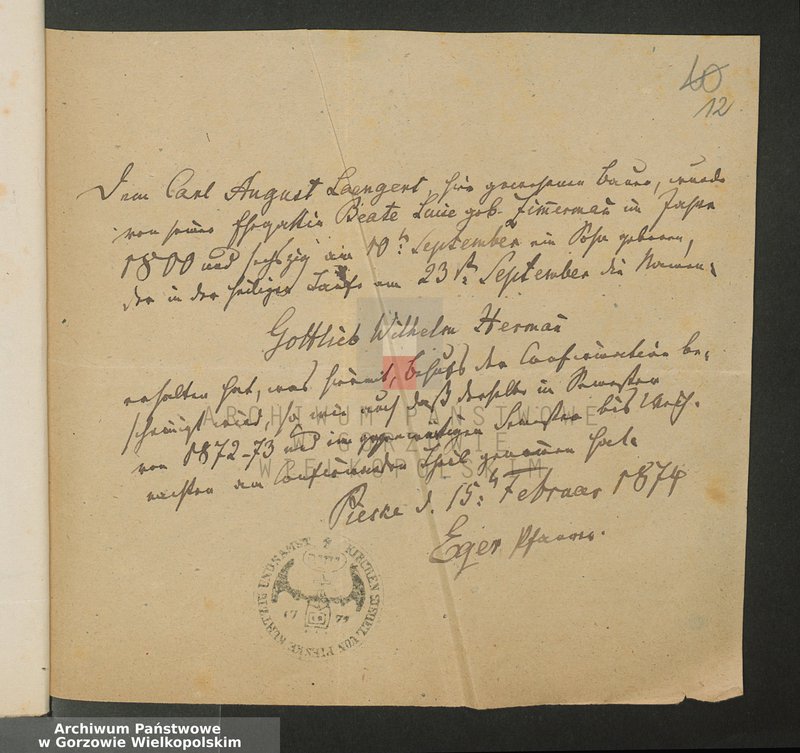 40
12
Dem Carl August Laengert, hier gewesenen Bauer, wurde
von seiner Ehegattin Beate Luise geb. Zimmerman im Jahre
1800 und sechszig am 19ten September ein Sohn geboren,
der in der heiligen Taufe am 23ten September die Namen:
Gottlieb Wilhelm Herman
erhalten hat, was hiermit, behufs der Confirmation be-
scheinigt wird, so wie auch daß derselbe im Semester
von 1872-73 und im gegenwärtigen Semester bis Weih-
nachten am Confirmanden Theil genommen hat.
Pieske d. 15ten Februar 1874
Eger Pfarrer.
KIRCHEN SIEGEL VON PIESKE KURTZIG UND SAMST
17 74
ARCHIWUM PAŃSTWOWE
W GORZOWIE
WIELKOPOLSKIM
Archiwum Państwowe
w Gorzowie Wielkopolskim